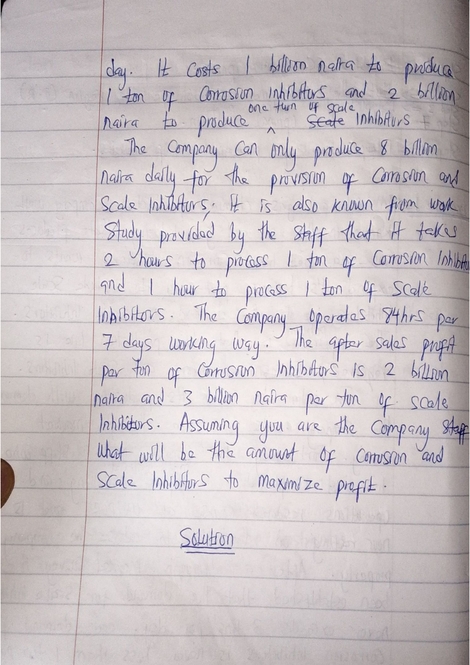 day. It Costs 1 billion naira to produce
1 ton of Corrosion Inhibitors and 2 billion
naira to produce one turn of scale Inhibitors
The Company Can only produce 8 billion
naira daily for the provision of Corrosion and
Scale Inhibitors; It is also known from work
Study provided by the Staff that It takes
2 hours to process 1 ton of Corrosion Inhib
and 1 hour to process 1 ton of Scale
Inhibitors. The Company Operates 84hrs per
7 days working way. The after sales profit
per ton of Corrosion Inhibitors is 2 billion
naira and 3 billion naira per ton of Scale
Inhibitors. Assuming you are the Company Staff
what will be the amount of Corrosion and
Scale Inhibitors to maximize profit.
Solution